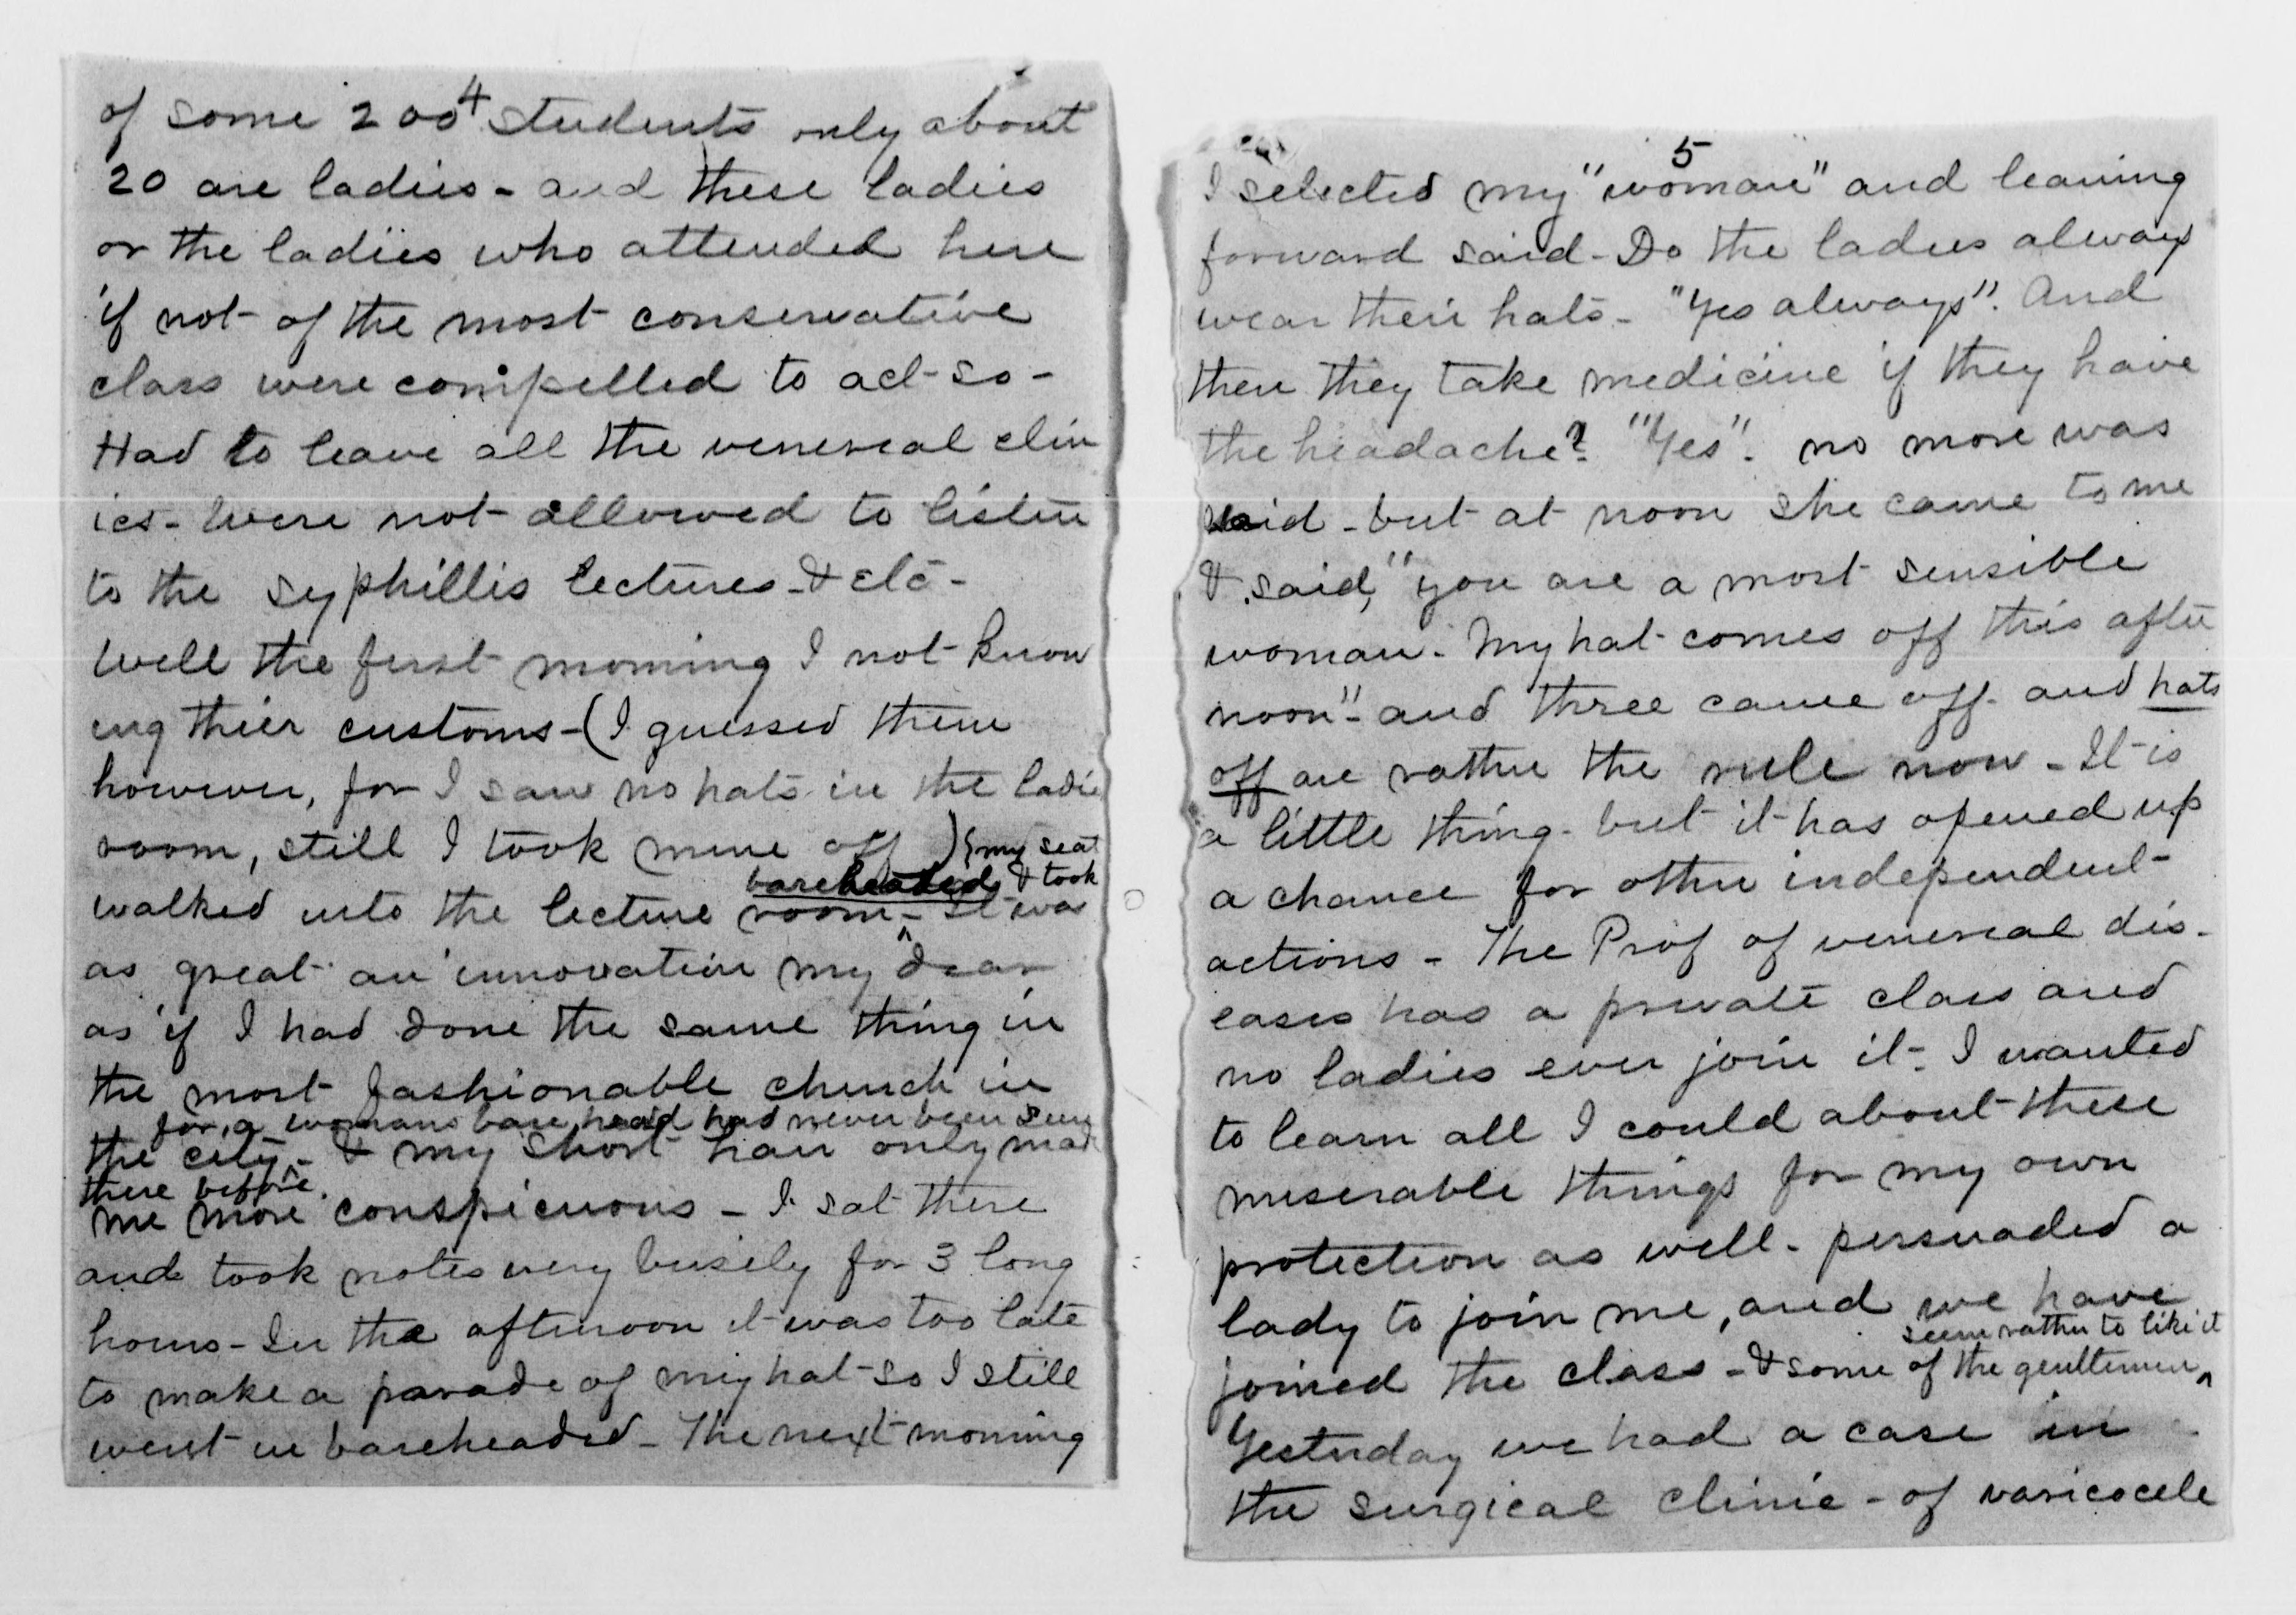 4
of some 200 students only about
20 are ladies - and these ladies
or the ladies who attended here
if not of the most conservative
class were compelled to act so -
Had to leave all the venereal clin
ics - Were not allowed to listen
to the syphillis lectures - & etc -
Well the first morning I not know
ing thier customs - (I guessed them
however, for I saw no hats in the ladie
room, still I took mine off ) {my seat
bareheaded & took
walked into the lecture room - It was
as great an innovation my dear
as if I had done the same thing in
the most fashionable church in
for a womans bare head had never been seen
the city - & my short hair only made
there before.
me more conspicuous - I sat there
and took notes very busily for 3 long
hours - In the afternoon it was too late
to make a parade of my hat so I still
went in bareheaded - The next morning
5
I selected my "woman" and leaning
forward said - Do the ladies always
wear their hats - "Yes always". And
then they take medicine if they have
the headache? "Yes". no more was
said - but at noon she came to me
& said, "you are a most sensible
woman - My hat comes off this after
noon" - and three came off - and hats
off are rather the rule now - It is
a little thing - but it has opened up
a chance for other independent
actions - The Prof of venereal dis-
eases has a private class and
no ladies ever join it - I wanted
to learn all I could about these
miserable things for my own
protection as well - persuaded a
lady to join me, and we have
seem rather to like it
joined the class - & some of the gentlemen
Yesterday we had a case in
the surgical clinic - of varicocele